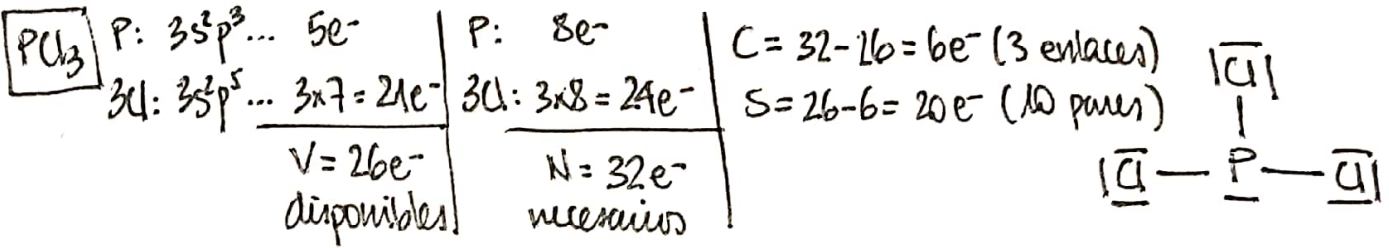 PCl₃
P: 3s²p³... 5e⁻
3Cl: 3s²p⁵... 3x7 = 21e⁻
V = 26e⁻
disponibles
P: 8e⁻
3Cl: 3x8 = 24e⁻
N = 32e⁻
necesarios
C = 32-26 = 6e⁻ (3 enlaces)
S = 26-6 = 20e⁻ (10 pares)
Cl
Cl — P — Cl